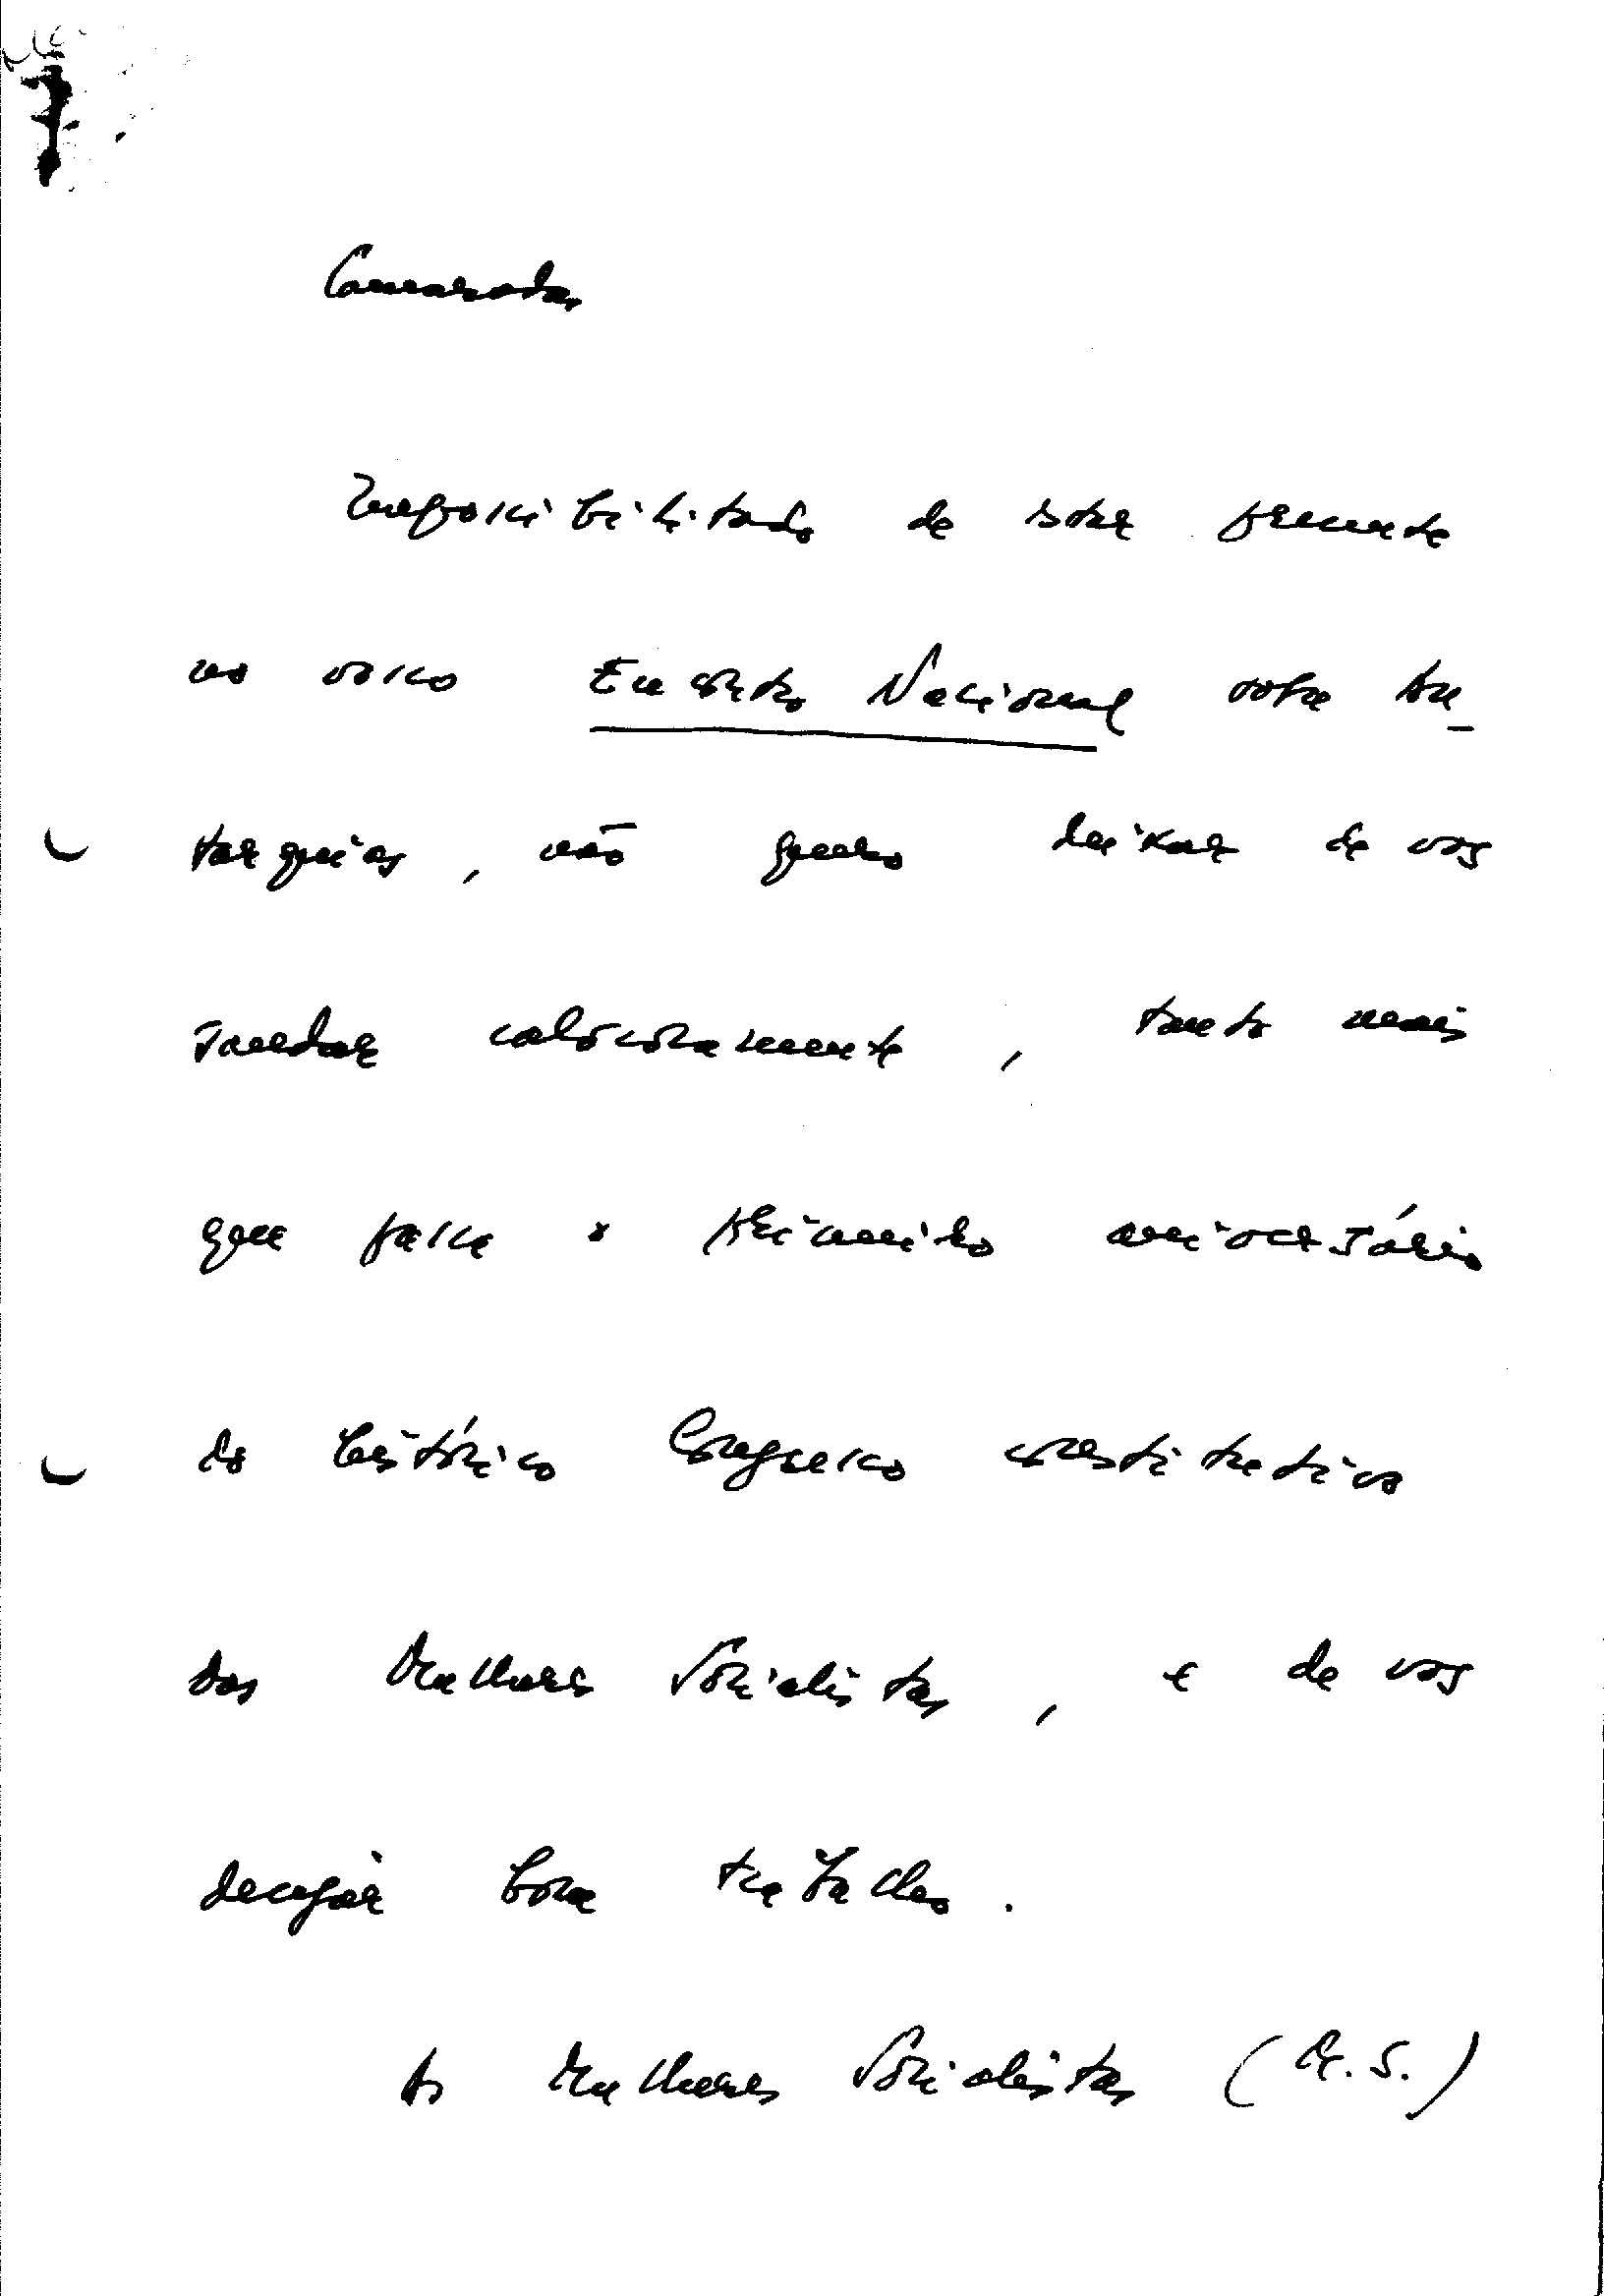 Camaradas
Impossibilitado de estar presente
no vosso Encontro Nacional sobre Au_
tarquias, não quero deixar de vos
saudar calorosamente, tanto mais
que passa o primeiro aniversário
do histórico Congresso constitutivo
das Mulheres Socialistas, e de vos
desejar bom trabalho.
As Mulheres Socialistas (M.S.)